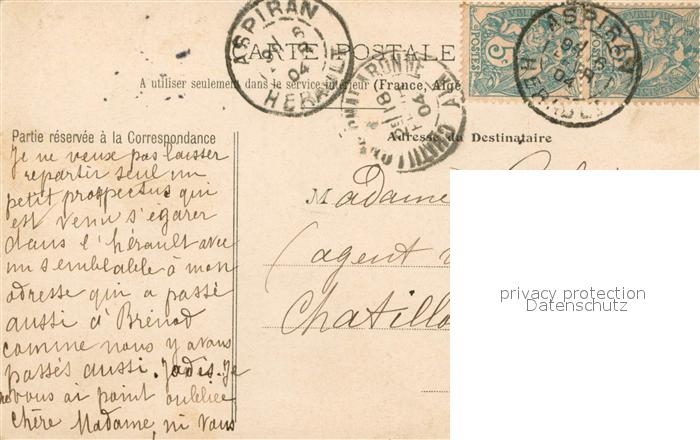 ASPIRAN
HERAULT
04
CARTE POSTALE
A utiliser seulement dans le service intérieur (France, Algé
POSTES
5
ASPIRAN
HERAULT
04
Partie réservée à la Correspondance
Adresse du Destinataire
Je ne veux pas laisser
repartir seul un
petit prospectus qui
est venu s'égarer
dans l'hérault avec
un semblable à mon
adresse qui a passé
aussi à Brénod
comme nous y avons
passés aussi. Jadis. Je
ne vous ai point oubliée
chère Madame, ni vous
Madame
(agent
Chatillo
privacy protection
Datenschutz